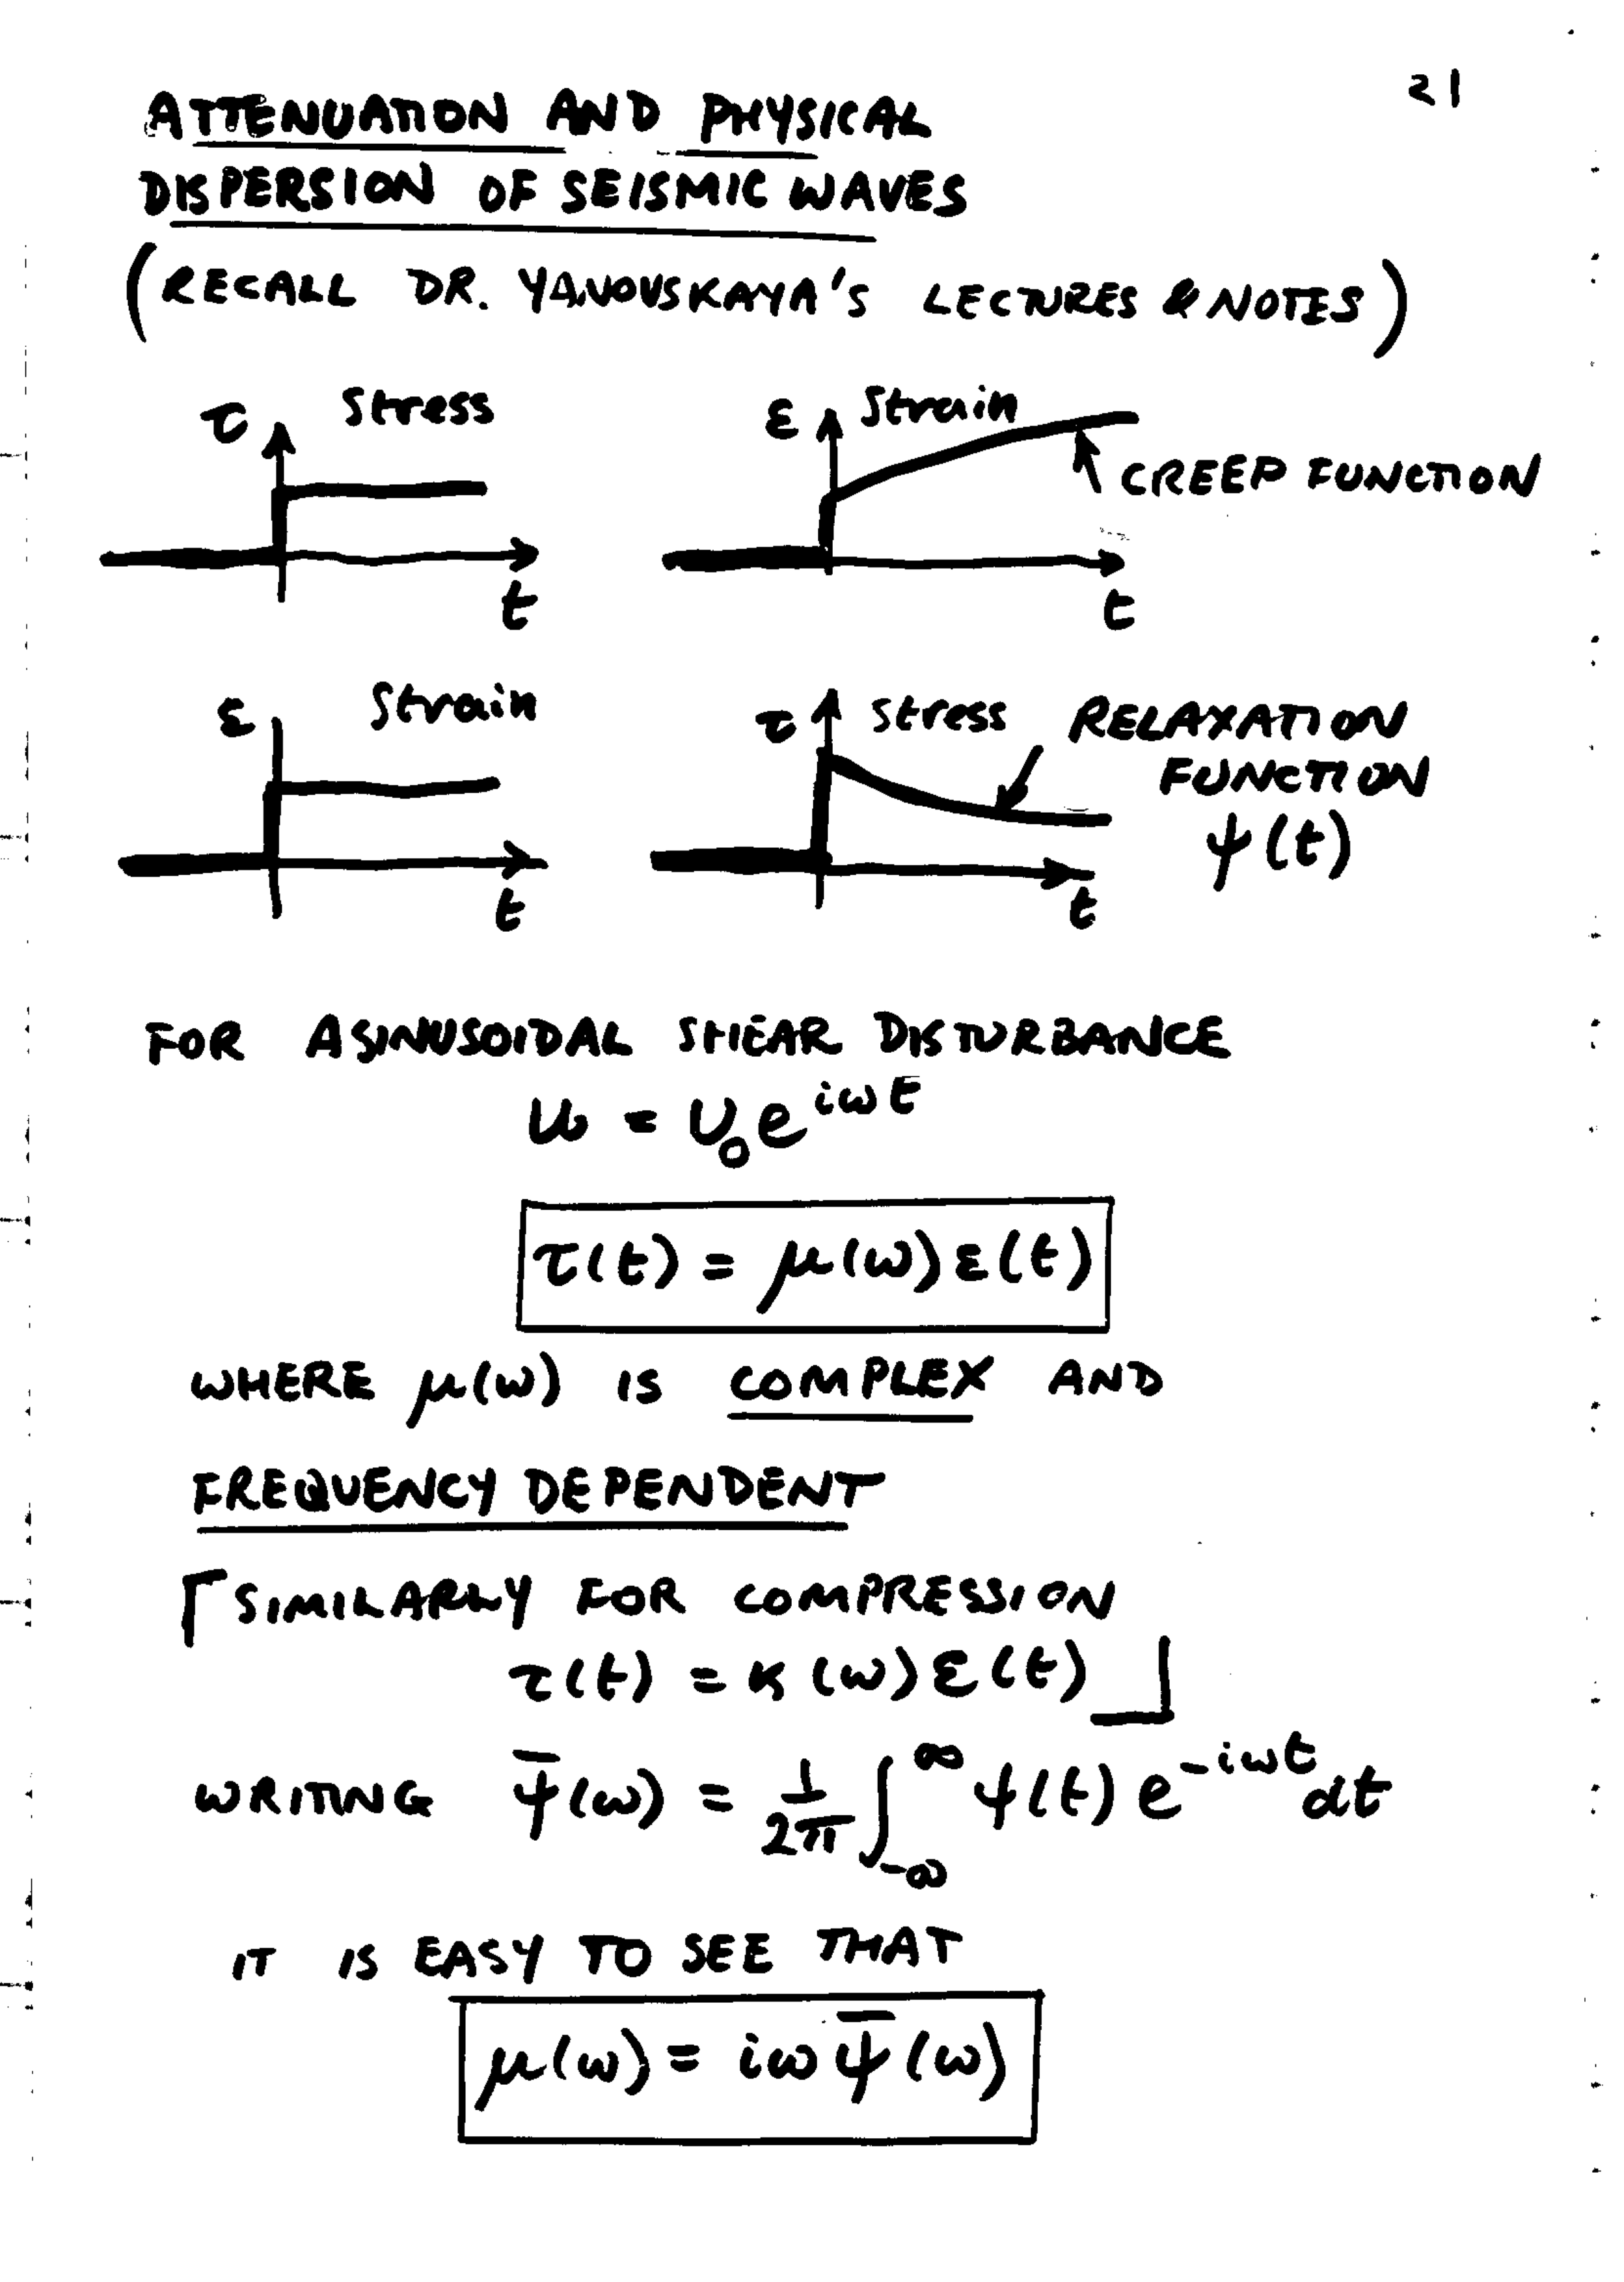 21
ATTENUATION AND PHYSICAL
DISPERSION OF SEISMIC WAVES
(RECALL DR. YANOVSKAYA'S LECTURES & NOTES)
τ Stress
t
ε Strain
CREEP FUNCTION
t
ε Strain
t
τ Stress RELAXATION
FUNCTION
ψ(t)
t
FOR A SINUSOIDAL SHEAR DISTURBANCE
u = U₀e^{iωt}
τ(t) = μ(ω)ε(t)
WHERE μ(ω) IS COMPLEX AND
FREQUENCY DEPENDENT
⌈SIMILARLY FOR COMPRESSION
τ(t) = κ(ω)ε(t)⌋
WRITING ψ̄(ω) = 1/2π ∫_{-∞}^{∞} ψ(t) e^{-iωt} dt
IT IS EASY TO SEE THAT
μ(ω) = iω ψ̄(ω)